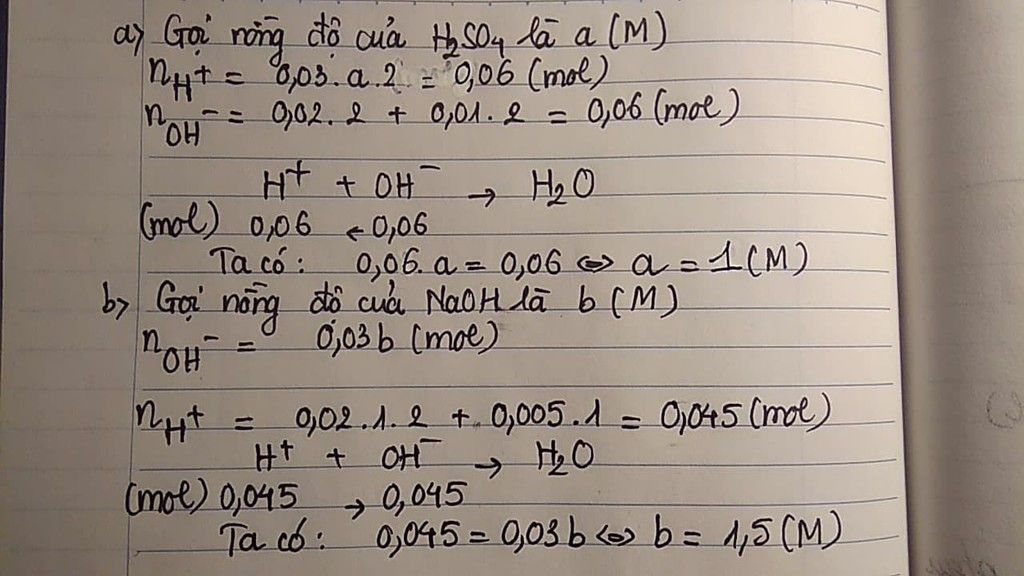 a) Gọi nồng độ của H₂SO₄ là a (M)
n_H⁺ = 0,03.a.2 = 0,06 (mol)
n_OH⁻ = 0,02.2 + 0,01.2 = 0,06 (mol)
H⁺ + OH⁻ → H₂O
(mol) 0,06 ← 0,06
Ta có: 0,06.a = 0,06 ⇔ a = 1 (M)
b) Gọi nồng độ của NaOH là b (M)
n_OH⁻ = 0,03b (mol)
n_H⁺ = 0,02.1.2 + 0,005.1 = 0,045 (mol)
H⁺ + OH⁻ → H₂O
(mol) 0,045 → 0,045
Ta có: 0,045 = 0,03b ⇔ b = 1,5 (M)